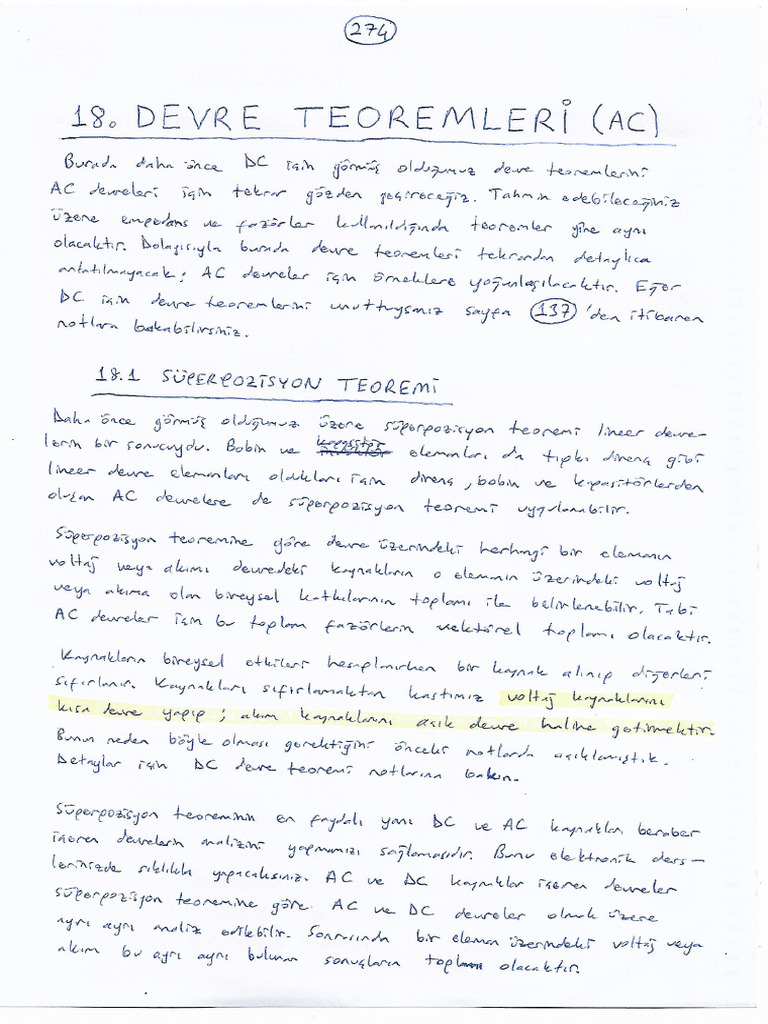 274
18. DEVRE TEOREMLERİ (AC)
Burada daha önce DC için görmüş olduğumuz devre teoremlerini
AC devreleri için tekrar gözden geçireceğiz. Tahmin edebileceğiniz
üzere empedans ve fazörler kullanıldığında teoremler yine aynı
olacaktır. Dolayısıyla burada devre teoremleri tekrardan detaylıca
anlatılmayacak; AC devreler için örneklere yoğunlaşılacaktır. Eğer
DC için devre teoremlerini unuttuysanız sayfa 137'den itibaren
notlara bakabilirsiniz.
18.1 SÜPERPOZİSYON TEOREMİ
Daha önce görmüş olduğumuz üzere süperpozisyon teoremi lineer devre-
lerin bir sonucuydu. Bobin ve kapasitör elemanları da tıpkı direnç gibi
lineer devre elemanları oldukları için direnç, bobin ve kapasitörlerden
oluşan AC devrelere de süperpozisyon teoremi uygulanabilir.
Süperpozisyon teoremine göre devre üzerindeki herhangi bir elemanın
voltaj veya akımı devredeki kaynakların o elemanın üzerindeki voltaj
veya akıma olan bireysel katkılarının toplamı ile belirlenebilir. Tabi
AC devreler için bu toplam fazörlerin vektörel toplamı olacaktır.
Kaynakların bireysel etkileri hesaplanırken bir kaynak alınıp diğerleri
sıfırlanır. Kaynakları sıfırlamaktan kastımız voltaj kaynaklarını
kısa devre yapıp; akım kaynaklarını açık devre haline getirmektir.
Bunun neden böyle olması gerektiğini önceki notlarda açıklamıştık.
Detaylar için DC devre teoremi notlarına bakın.
Süperpozisyon teoreminin en faydalı yanı DC ve AC kaynakları beraber
içeren devrelerin analizini yapmamızı sağlamasıdır. Bunu elektronik ders-
lerinizde sıklıkla yapacaksınız. AC ve DC kaynaklar içeren devreler
süperpozisyon teoremine göre AC ve DC devreler olmak üzere
ayrı ayrı analiz edilebilir. Sonrasında bir eleman üzerindeki voltaj veya
akım bu ayrı ayrı bulunan sonuçların toplamı olacaktır.